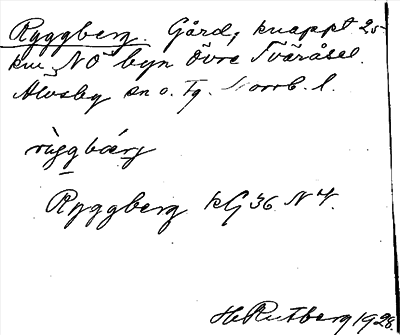 Ryggberg. Gård, knappt 25
km NO byn Övre Tväråsel.
Älvsby sn o. Tg. Norrb. l.
rùggbærj
Ryggberg kG 36 N 4.
H. Rutberg 1928.